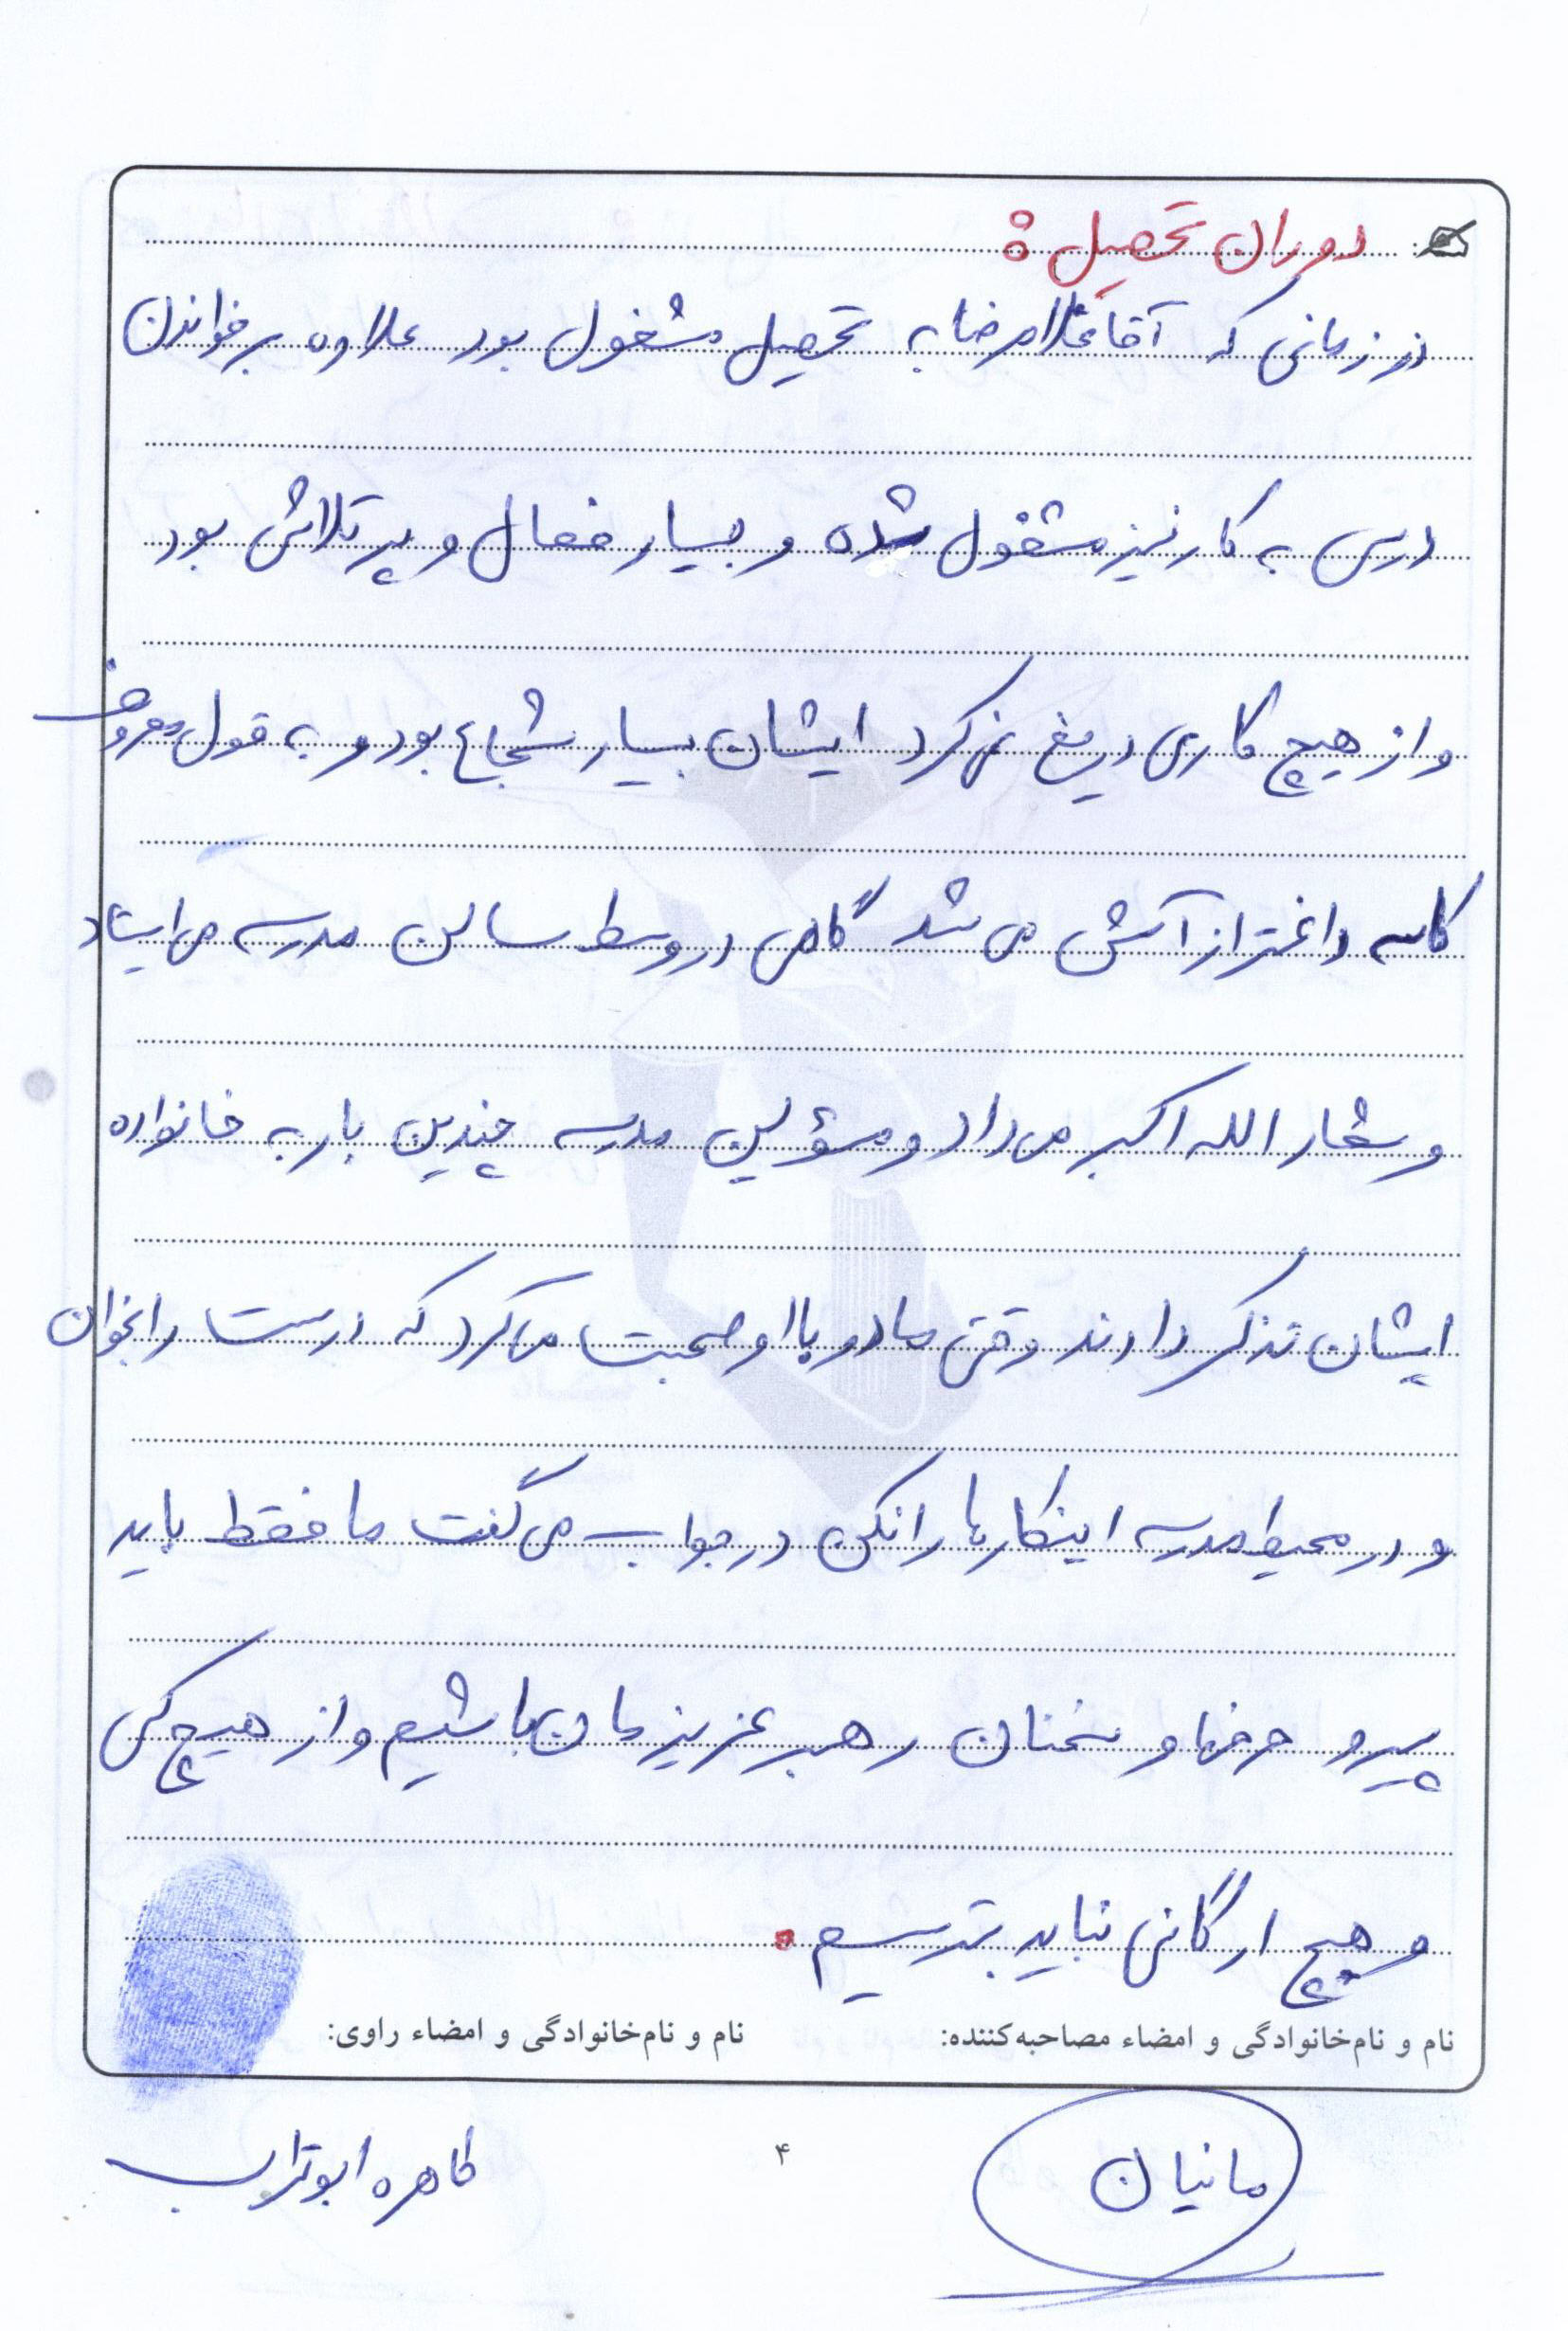 دوران تحصیل:
در زمانی که آقا غلامرضا به تحصیل مشغول بود علاوه بر خواندن
درس به کار نیز مشغول شده و بسیار فعال و پر تلاش بود
و از هیچ کاری دریغ نمی‌کرد ایشان بسیار شجاع بود و به قول معروف
کاسه داغتر از آش می شد گاهی در وسط سالن مدرسه می ایستاد
و شعار الله اکبر می داد و مسؤلین مدرسه چندین بار به خانواده
ایشان تذکر دادند وقتی مادر با او صحبت می کرد که درست را بخوان
و در محیط مدرسه اینکارها را نکن در جواب می گفت ما فقط باید
پیرو حرفها و سخنان رهبر عزیزمان باشیم و از هیچ کس
و هیچ ارگانی نباید بترسیم.
نام و نام‌خانوادگی و امضاء مصاحبه‌کننده: نام و نام‌خانوادگی و امضاء راوی:
مانیان ۴ طاهره ابوتراب